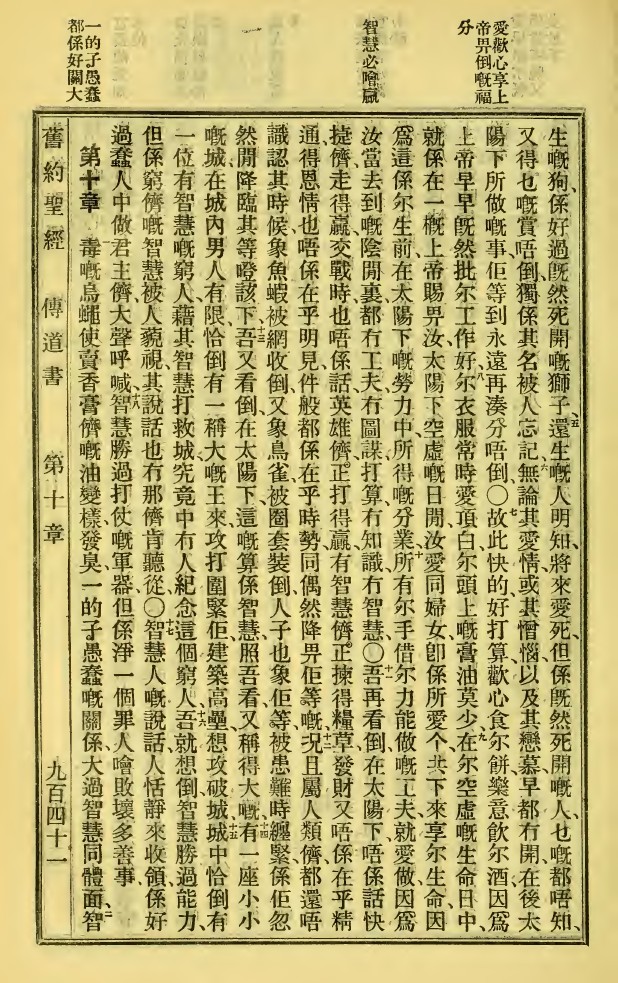 愛歡心享上
帝畀倒嘅福
分
智慧必噲贏
一的子愚蠢
都係好關大
生嘅狗係好過既然死開嘅獅子、五還生嘅人明知將來愛死但係既然死開嘅人乜嘅都唔知、
又得乜嘅賞唔倒、獨係其名被人忘記、六無論其愛情或其憎惱以及其戀慕早都冇開在後太
陽下所做嘅事佢等到永遠再湊分唔倒、〇七故此快的好打算歡心食尔餅樂意飲尔酒因爲
上帝早早既然批尔工作好、八尔衣服常時愛頂白尔頭上嘅膏油莫少、九在尔空虛嘅生命日中、
就係在一概上帝賜畀汝太陽下空虛嘅日開汝愛同婦女卽係所愛个共下來享尔生命因
爲這係尔生前在太陽下嘅勞力中所得嘅分業、十所有尔手借尔力能做嘅工夫就愛做因爲
汝當去到嘅陰間裏都冇工夫冇圖謀打算冇知識冇智慧、〇十一吾再看倒在太陽下唔係話快
捷儕走得贏交戰時也唔係話英雄儕正打得贏有智慧儕正揀得糧草發財又唔係在乎精
通得恩情也唔係在乎明見件般都係在乎時勢同偶然降畀佢等嘅、十二況且屬人類儕都還唔
識認其時候象魚蝦被網收倒、又象鳥雀被圈套裝倒、人子也象佢等被患難時纏緊係佢忽
然間降臨其等噔該下、十三吾又看倒在太陽下這嘅算係智慧、照吾看又稱得大嘅、十四有一座小小
嘅城在城內男人有限恰倒有一稱大嘅王來攻打圍緊佢建築高壘想攻破城、十五城中恰倒有
一位有智慧嘅窮人、藉其智慧打救城究竟中冇人紀念這個窮人、十六吾就想倒智慧勝過能力、
但係窮儕嘅智慧被人藐視、其說話也冇那儕肯聽從、〇十七智慧人嘅說話人恬靜來收領係好
過蠢人中做君主儕大聲呼喊、十八智慧勝過打仗嘅軍器、但係淨一個罪人噲敗壞多善事、
第十章　一毒嘅烏蠅使賣香膏儕嘅油變樣發臭、一的子愚蠢嘅關係大過智慧同體面、二智
舊約聖經　傳道書　第十章　九百四十一